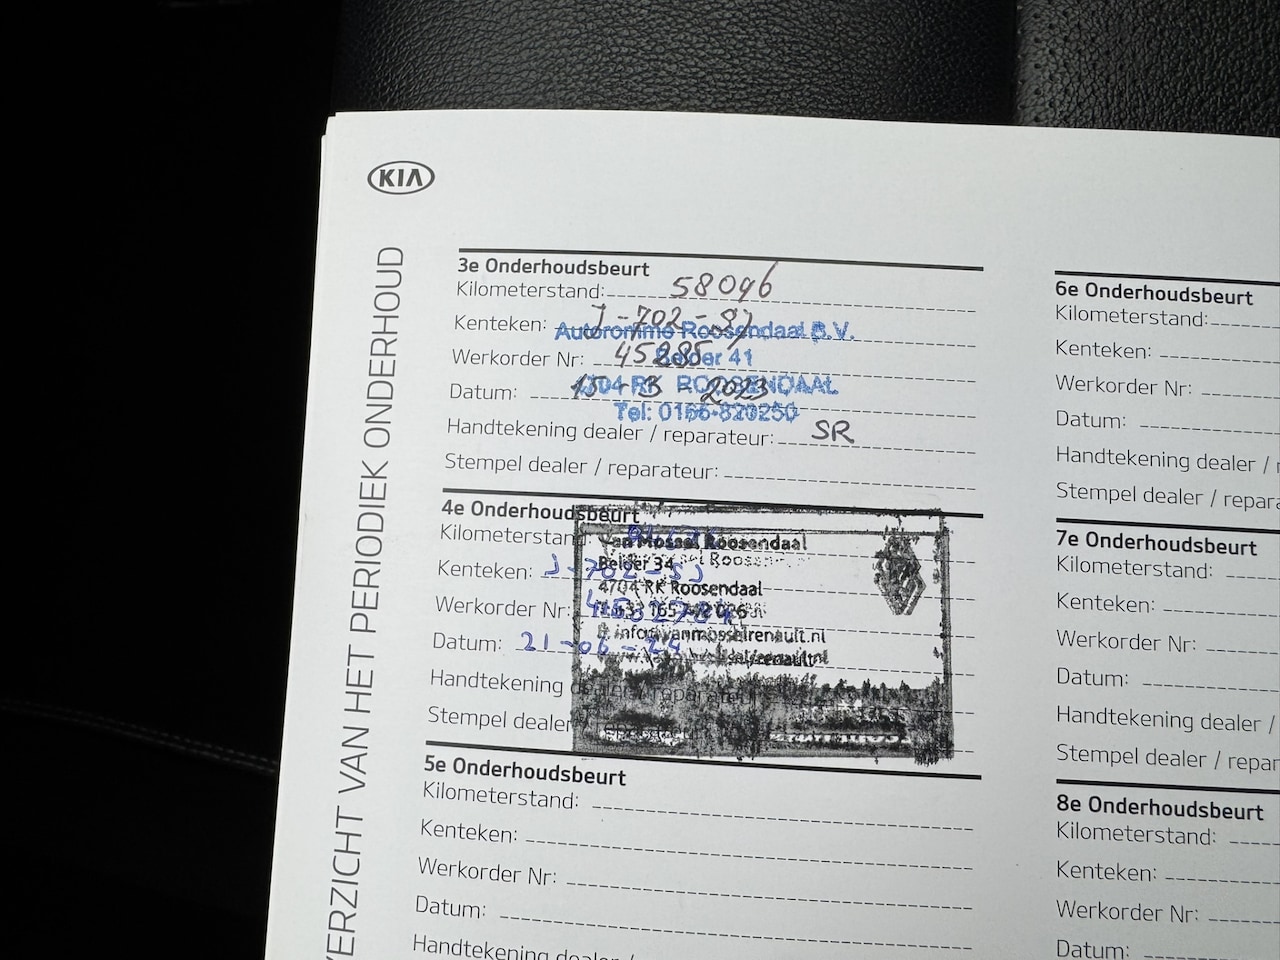 KIA
OVERZICHT VAN HET PERIODIEK ONDERHOUD
3e Onderhoudsbeurt
Kilometerstand: 58046
Kenteken: J-702-SJ
Autoromme Roosendaal B.V.
Werkorder Nr: 45285
Belder 41
Datum: 15-3-2023
4704 RK ROOSENDAAL
Tel: 0165-820250
Handtekening dealer / reparateur: SR
Stempel dealer / reparateur:
4e Onderhoudsbeurt
Kilometerstand:
Van Mossel Roosendaal
Kenteken: J-702-SJ
Belder 34
4704 RK Roosendaal
Werkorder Nr:
info@vanmosselrenault.nl
Datum: 21-06-24
Handtekening dealer / reparateur
Stempel dealer /
5e Onderhoudsbeurt
Kilometerstand:
Kenteken:
Werkorder Nr:
Datum:
Handtekening dealer /
6e Onderhoudsbeurt
Kilometerstand:
Kenteken:
Werkorder Nr:
Datum:
Handtekening dealer / r
Stempel dealer / repara
7e Onderhoudsbeurt
Kilometerstand:
Kenteken:
Werkorder Nr:
Datum:
Handtekening dealer /
Stempel dealer / repar
8e Onderhoudsbeurt
Kilometerstand:
Kenteken:
Werkorder Nr:
Datum: